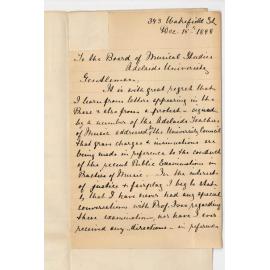 343 Wakefield St
Dec. 15th 1898
To the Board of Musical Studies
Adelaide University
Gentlemen,
It is with great regret that
I learn from letters appearing in the
Press & also from a protest signed
by a number of the Adelaide Teachers
of Music addressed to the University Council
that grave charges & insinuations are
being made in reference to the conduct
of the recent Public Examinations in
Practice of Music. In the interest
of justice & fairplay I beg to state
that I have never had any special
conversations with Prof. Ives regarding
these examinations, nor have I ever
received any directions in reference